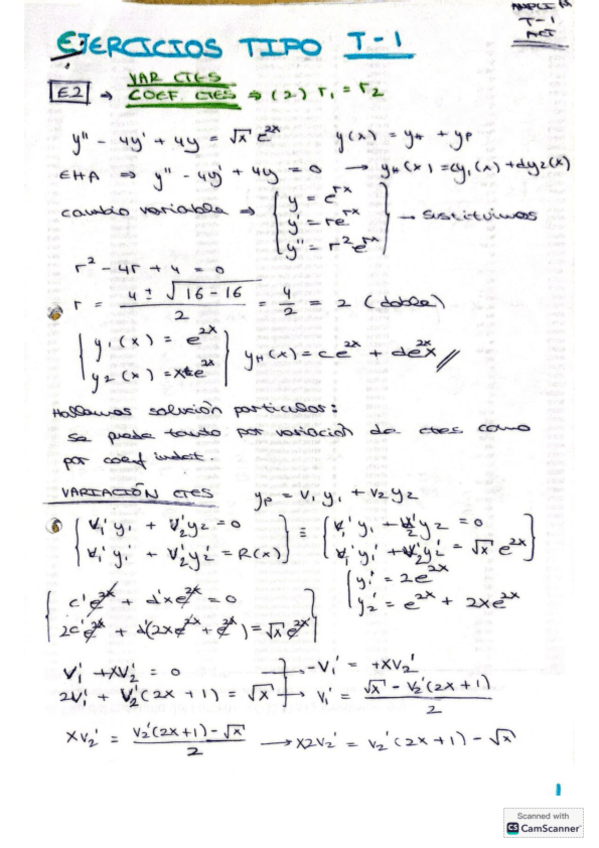 AMPLI
T-1
EJERCICIOS TIPO T-1
E2 → VAR CTES
COEF. CTES ⇒ (2) r₁ = r₂
y'' - 4y' + 4y = √x e^2x   y(x) = yH + yp
EHA ⇒ y'' - 4y' + 4y = 0 → yH(x) = cy₁(x) + dy₂(x)
cambio variable ⇒ { y = e^rx
y' = re^rx
y'' = r²e^rx } → sustituimos
r² - 4r + 4 = 0
r = (4 ± √16-16)/2 = 4/2 = 2 (doble)
{ y₁(x) = e^2x
y₂(x) = xe^2x } yH(x) = ce^2x + de^2x x //
Hallamos solución particular:
se puede tanto por variación de ctes como
por coef indet.
VARIACIÓN CTES   yp = v₁y₁ + v₂y₂
{ v₁'y₁ + v₂'y₂ = 0
v₁'y₁' + v₂'y₂' = R(x) } ≡ { v₁'y₁ + v₂'y₂ = 0
v₁'y₁' + v₂'y₂' = √x e^2x }
{ y₁' = 2e^2x
y₂' = e^2x + 2xe^2x
{ c'e^2x + d'xe^2x = 0
2c'e^2x + d'(2xe^2x + e^2x) = √x e^2x }
v₁' + xv₂' = 0 → -v₁' = +xv₂'
2v₁' + v₂'(2x+1) = √x → v₁' = (√x - v₂'(2x+1))/2
xv₂' = (v₂'(2x+1) - √x)/2 → x2v₂' = v₂'(2x+1) - √x
1
Scanned with
CS CamScanner